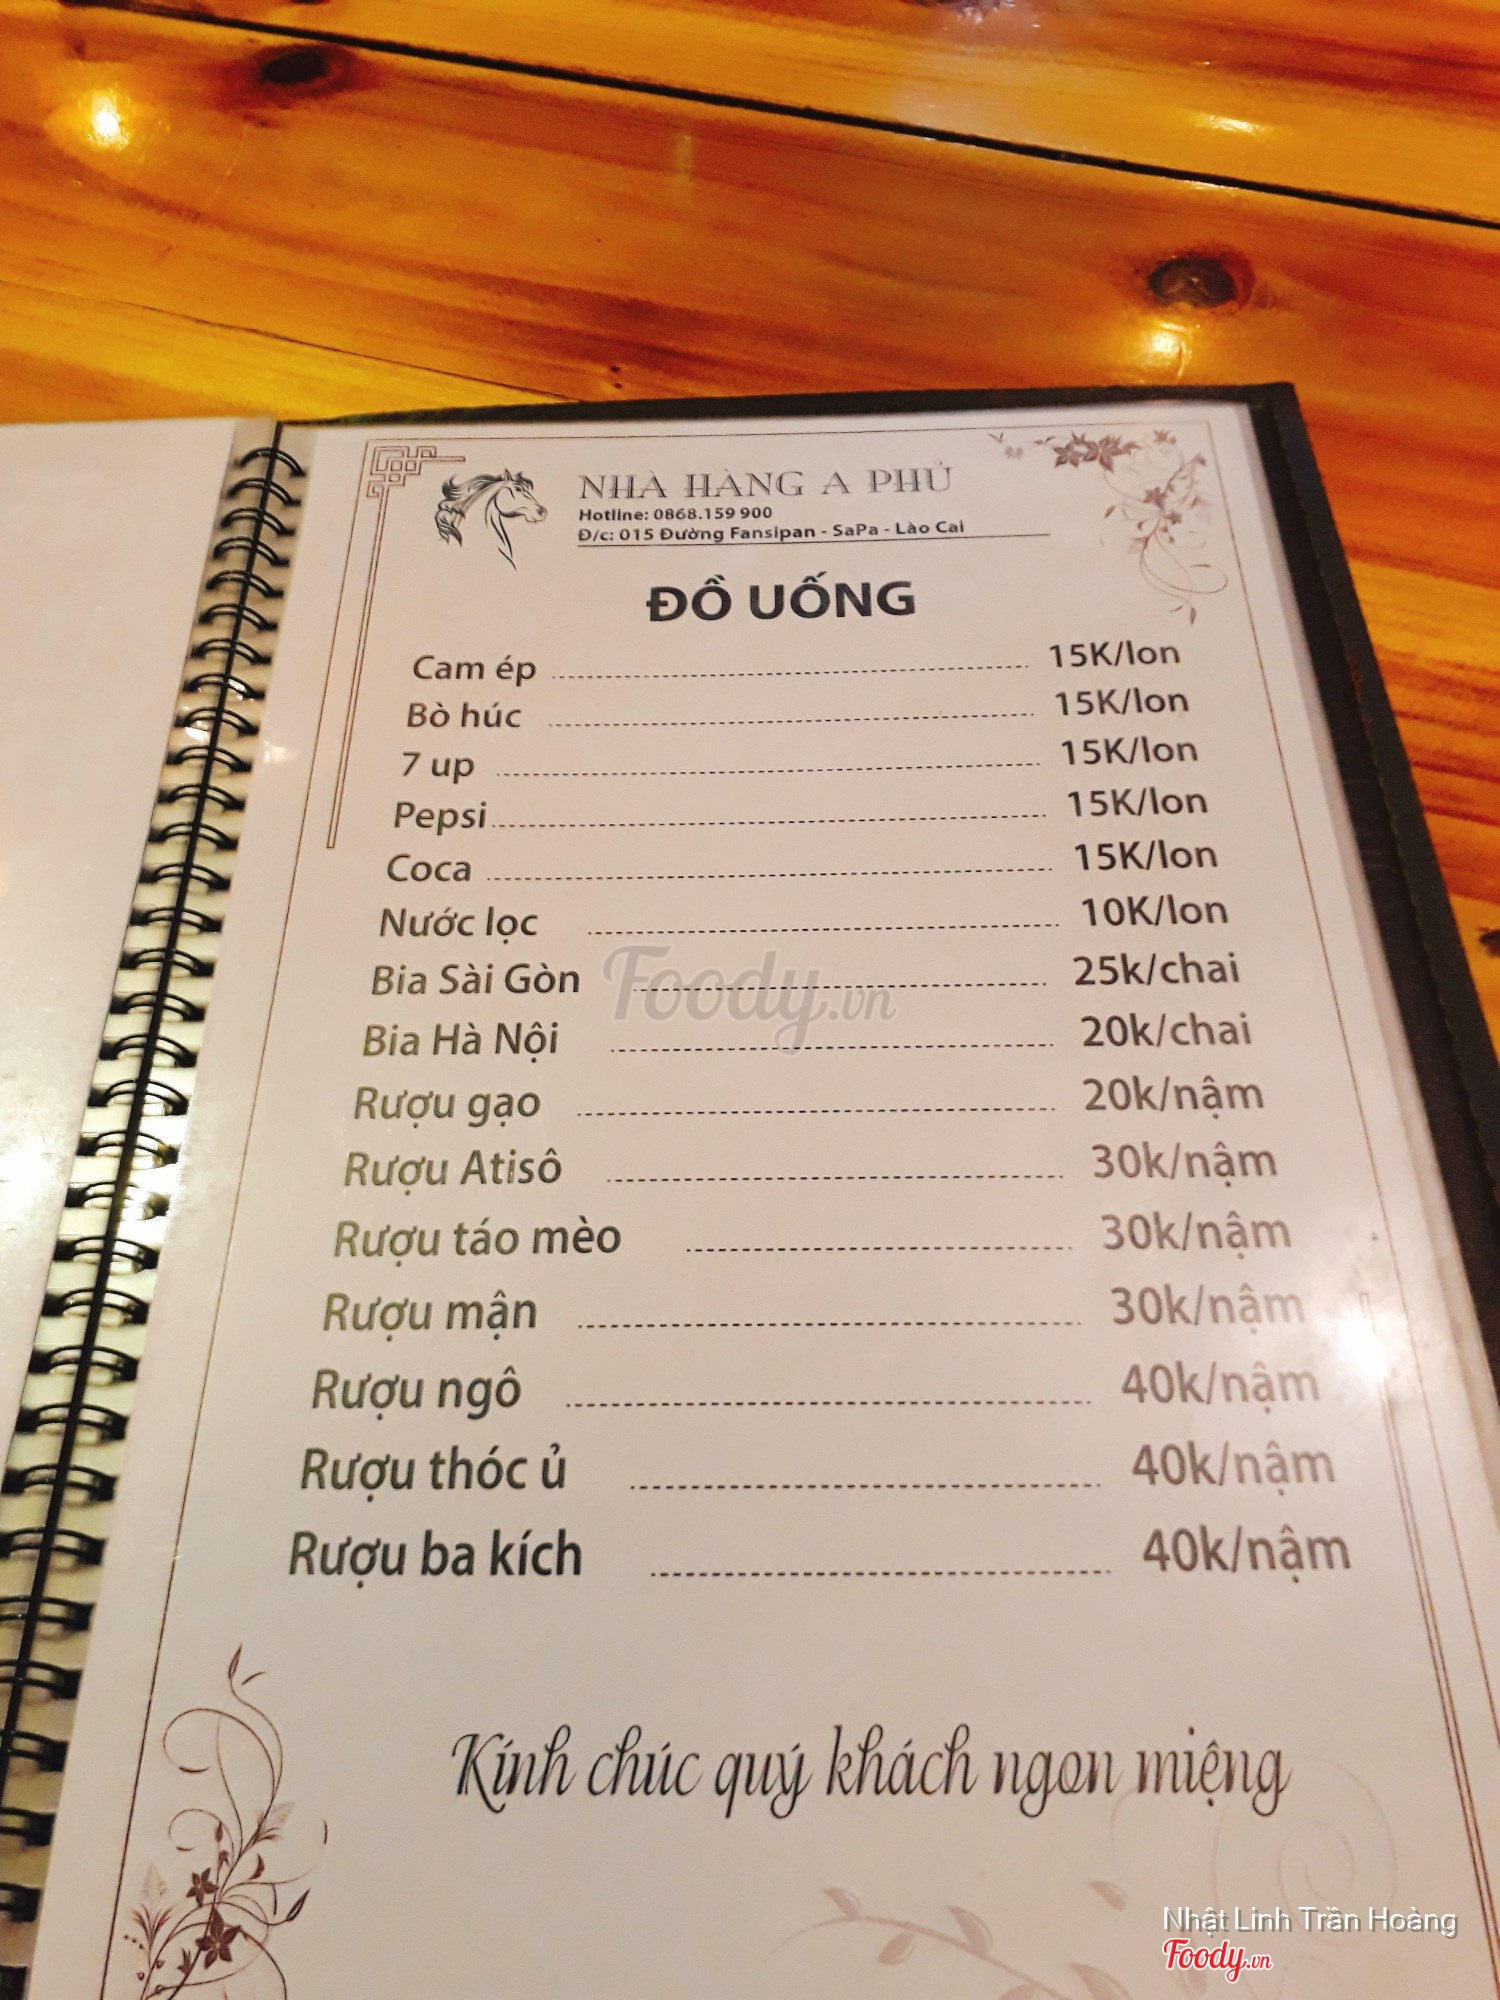 NHÀ HÀNG A PHỦ
Hotline: 0868.159 900
Đ/c: 015 Đường Fansipan - SaPa - Lào Cai
ĐỒ UỐNG
Cam ép 15K/lon
Bò húc 15K/lon
7 up 15K/lon
Pepsi 15K/lon
Coca 15K/lon
Nước lọc 10K/lon
Bia Sài Gòn 25k/chai
Bia Hà Nội 20k/chai
Rượu gạo 20k/nậm
Rượu Atisô 30k/nậm
Rượu táo mèo 30k/nậm
Rượu mận 30k/nậm
Rượu ngô 40k/nậm
Rượu thóc ủ 40k/nậm
Rượu ba kích 40k/nậm
Kính chúc quý khách ngon miệng
Foody.vn
Nhật Linh Trần Hoàng
Foody.vn